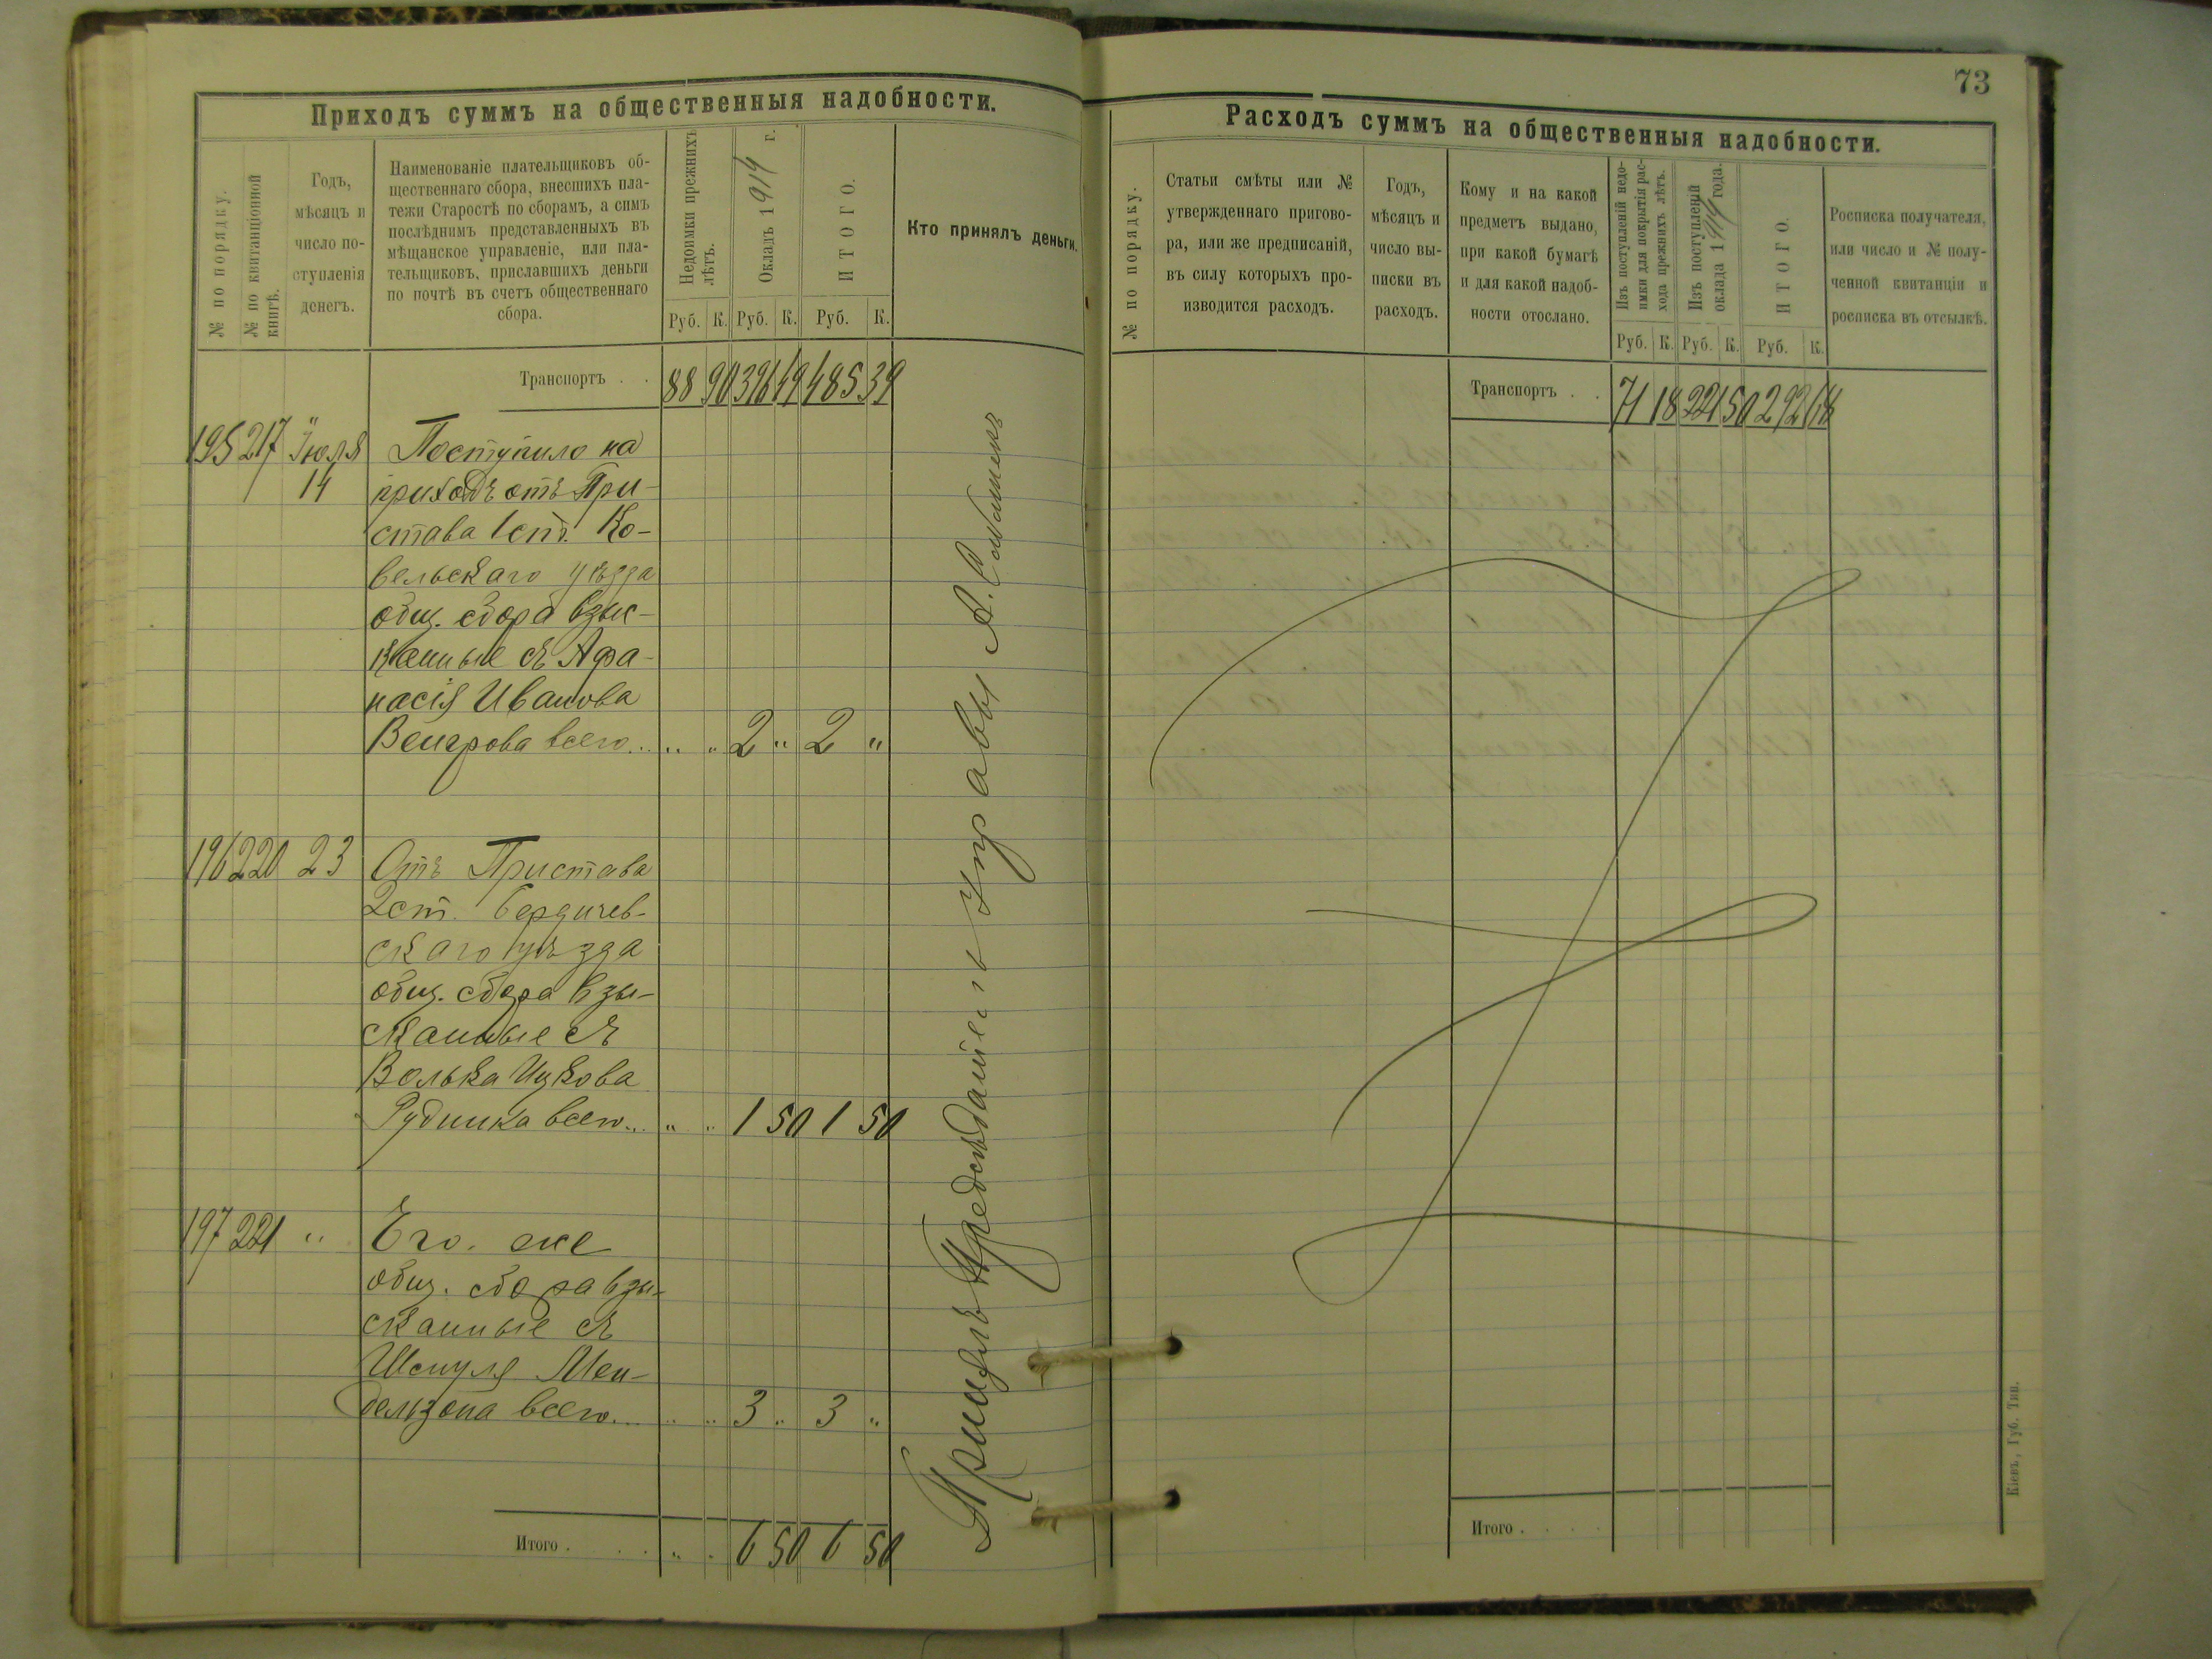 Приходъ суммъ на общественныя надобности.
№ по порядку.
№ по квитанціонной
книгѣ.
Годъ,
мѣсяцъ и
число по-
ступленія
денегъ.
Наименованіе плательщиковъ об-
щественнаго сбора, внесшихъ пла-
тежи Старостѣ по сборамъ, а симъ
послѣднимъ представленныхъ въ
мѣщанское управленіе, или пла-
тельщиковъ, приславшихъ деньги
по почтѣ въ счетъ общественнаго
сбора.
Недоимки прежнихъ
лѣтъ.
Окладъ 1914 г.
ИТОГО.
Кто принялъ деньги.
Руб. К. Руб. К. Руб. К.
Транспортъ . . 88 90 396 49 485 39
195 217 Іюля Поступило на
14 приходъ отъ При-
става 1 ст. Ко-
вельскаго уѣзда
общ. сбора взыс-
канные съ Афа-
насія Иванова
Венгрова всего... " " 2 " 2 "
196 220 23 Отъ Пристава
2 ст. Бердичев-
скаго уѣзда
общ. сбора взы-
сканные съ
Волька Ицкова
Рудника всего... " " 1 50 1 50
197 221 " Его же
общ. сбора взы-
сканные съ
Шмуля Мен-
дельзона всего... " " 3 " 3 "
Итого . . . " " 6 50 6 50
Принялъ Предсѣдатель Управы А.
73
Расходъ суммъ на общественныя надобности.
№ по порядку.
Статьи смѣты или №
утвержденнаго пригово-
ра, или же предписаній,
въ силу которыхъ про-
изводится расходъ.
Годъ,
мѣсяцъ и
число вы-
писки въ
расходъ.
Кому и на какой
предметъ выдано,
при какой бумагѣ
и для какой надоб-
ности отослано.
Изъ поступленій недо-
имки для покрытія рас-
хода прежнихъ лѣтъ.
Изъ поступленій
оклада 1914 года.
ИТОГО.
Росписка получателя,
или число и № полу-
ченной квитанціи и
росписка въ отсылкѣ.
Руб. К. Руб. К. Руб. К.
Транспортъ . . 71 18 221 50 292 68
Итого . . . .
Кіевъ, Губ. Тип.